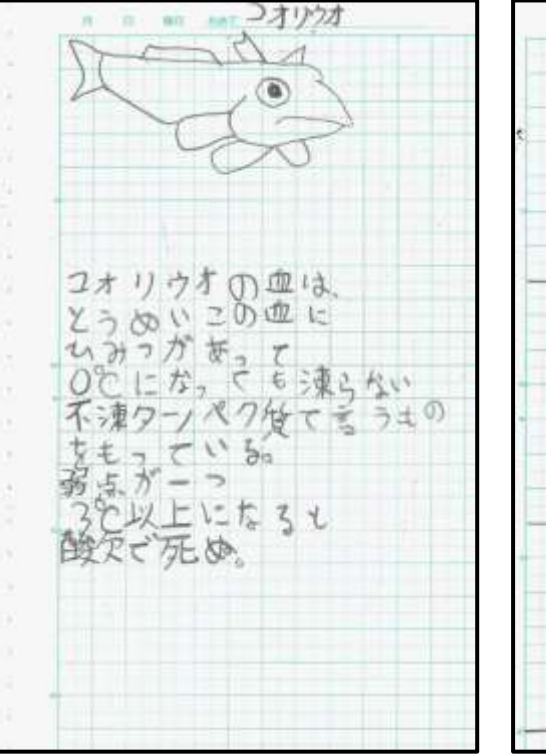 コオリウオ
コオリウオの血は、
とうめいこの血に
ひみつがあって
0℃になっても凍らない
不凍ターンペク質て言うもの
をもっている。
弱点が一つ
3℃以上になると
酸欠で死ぬ。